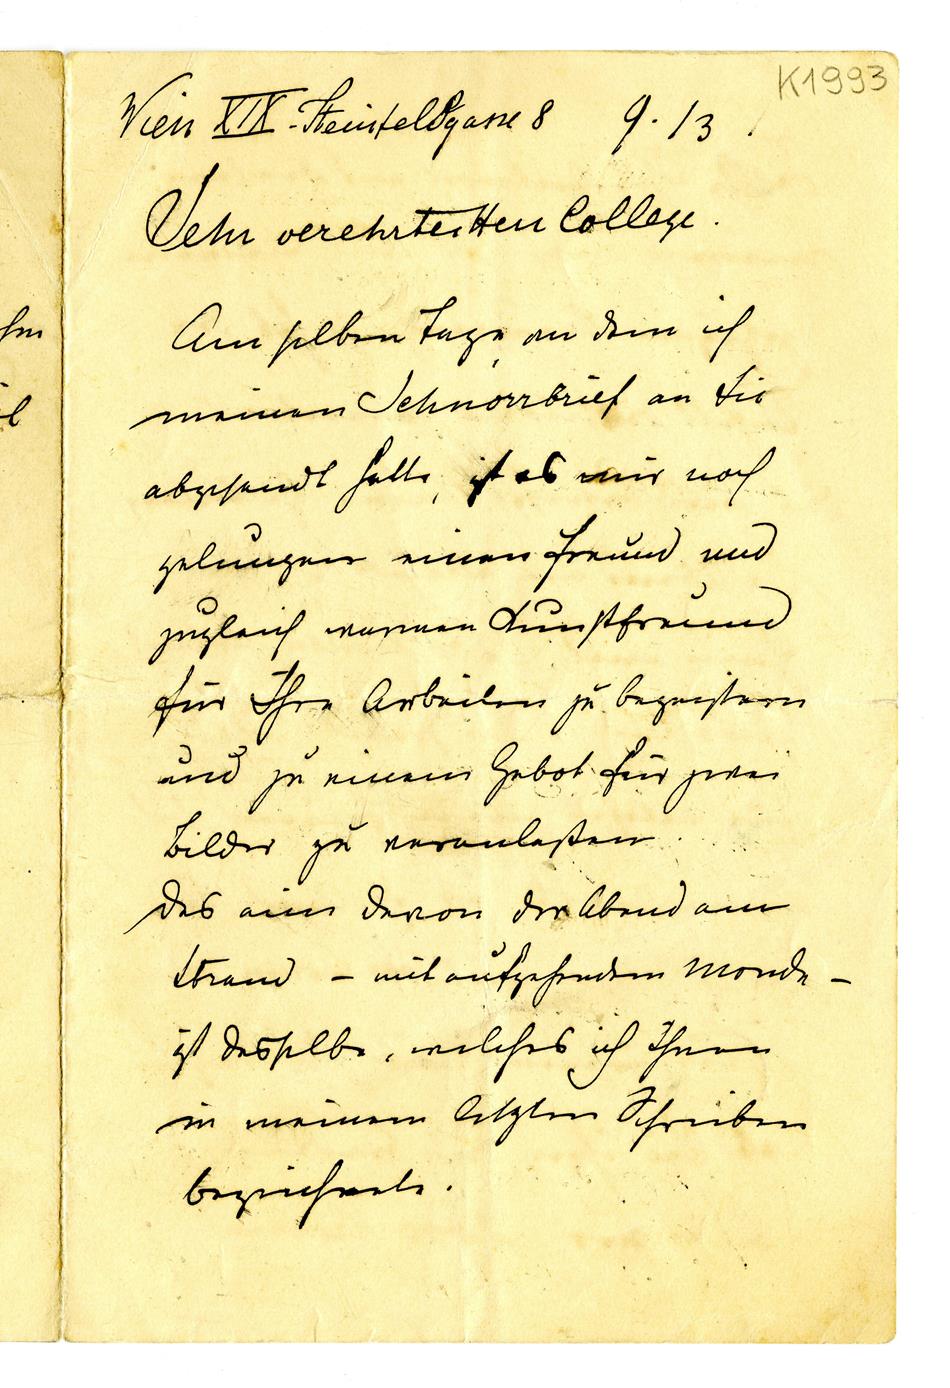 K1993
Wien XIX - Steinfeldgasse 8 9./3.
Sehr verehrter Herr College.
Am selben Tage, an dem ich
meinen Schnorrbrief an Sie
abgesandt hatte, ist es mir noch
gelungen einen Freund und
zugleich warmen Kunstfreund
für Ihre Arbeiten zu begeistern
und zu einem Gebot für zwei
Bilder zu veranlaßen.
das eine davon der Abend am
Strand – mit aufgehendem Monde –
ist dasselbe, welches ich Ihnen
in meinem letzten Schreiben
bezeichnete.